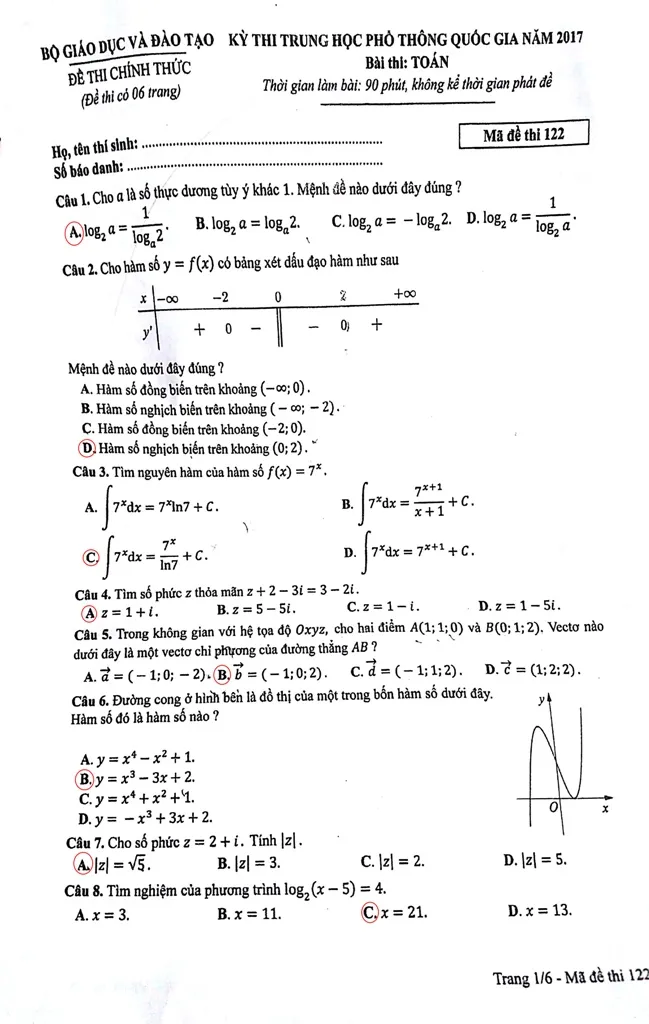 BỘ GIÁO DỤC VÀ ĐÀO TẠO KỲ THI TRUNG HỌC PHỔ THÔNG QUỐC GIA NĂM 2017
ĐỀ THI CHÍNH THỨC Bài thi: TOÁN
(Đề thi có 06 trang) Thời gian làm bài: 90 phút, không kể thời gian phát đề
Họ, tên thí sinh: ............................................................
Mã đề thi 122
Số báo danh: ............................................................
Câu 1. Cho a là số thực dương tùy ý khác 1. Mệnh đề nào dưới đây đúng ?
A. log₂ a = 1/logₐ2. B. log₂ a = logₐ2. C. log₂ a = − logₐ2. D. log₂ a = 1/log₂ a.
Câu 2. Cho hàm số y = f(x) có bảng xét dấu đạo hàm như sau
x −∞ −2 0 2 +∞
y' + 0 − || − 0 +
Mệnh đề nào dưới đây đúng ?
A. Hàm số đồng biến trên khoảng (−∞; 0).
B. Hàm số nghịch biến trên khoảng (− ∞; − 2).
C. Hàm số đồng biến trên khoảng (−2; 0).
D. Hàm số nghịch biến trên khoảng (0; 2).
Câu 3. Tìm nguyên hàm của hàm số f(x) = 7ˣ.
A. ∫7ˣdx = 7ˣln7 + C. B. ∫7ˣdx = 7ˣ⁺¹/(x + 1) + C.
C. ∫7ˣdx = 7ˣ/ln7 + C. D. ∫7ˣdx = 7ˣ⁺¹ + C.
Câu 4. Tìm số phức z thỏa mãn z + 2 − 3i = 3 − 2i.
A. z = 1 + i. B. z = 5 − 5i. C. z = 1 − i. D. z = 1 − 5i.
Câu 5. Trong không gian với hệ tọa độ Oxyz, cho hai điểm A(1; 1; 0) và B(0; 1; 2). Vectơ nào
dưới đây là một vectơ chỉ phương của đường thẳng AB ?
A. a⃗ = (− 1; 0; − 2). B. b⃗ = (− 1; 0; 2). C. d⃗ = (− 1; 1; 2). D. c⃗ = (1; 2; 2).
Câu 6. Đường cong ở hình bên là đồ thị của một trong bốn hàm số dưới đây.
Hàm số đó là hàm số nào ?
A. y = x⁴ − x² + 1.
B. y = x³ − 3x + 2.
C. y = x⁴ + x² + 1.
D. y = − x³ + 3x + 2.
y
O x
Câu 7. Cho số phức z = 2 + i. Tính |z|.
A. |z| = √5. B. |z| = 3. C. |z| = 2. D. |z| = 5.
Câu 8. Tìm nghiệm của phương trình log₂(x − 5) = 4.
A. x = 3. B. x = 11. C. x = 21. D. x = 13.
Trang 1/6 - Mã đề thi 122